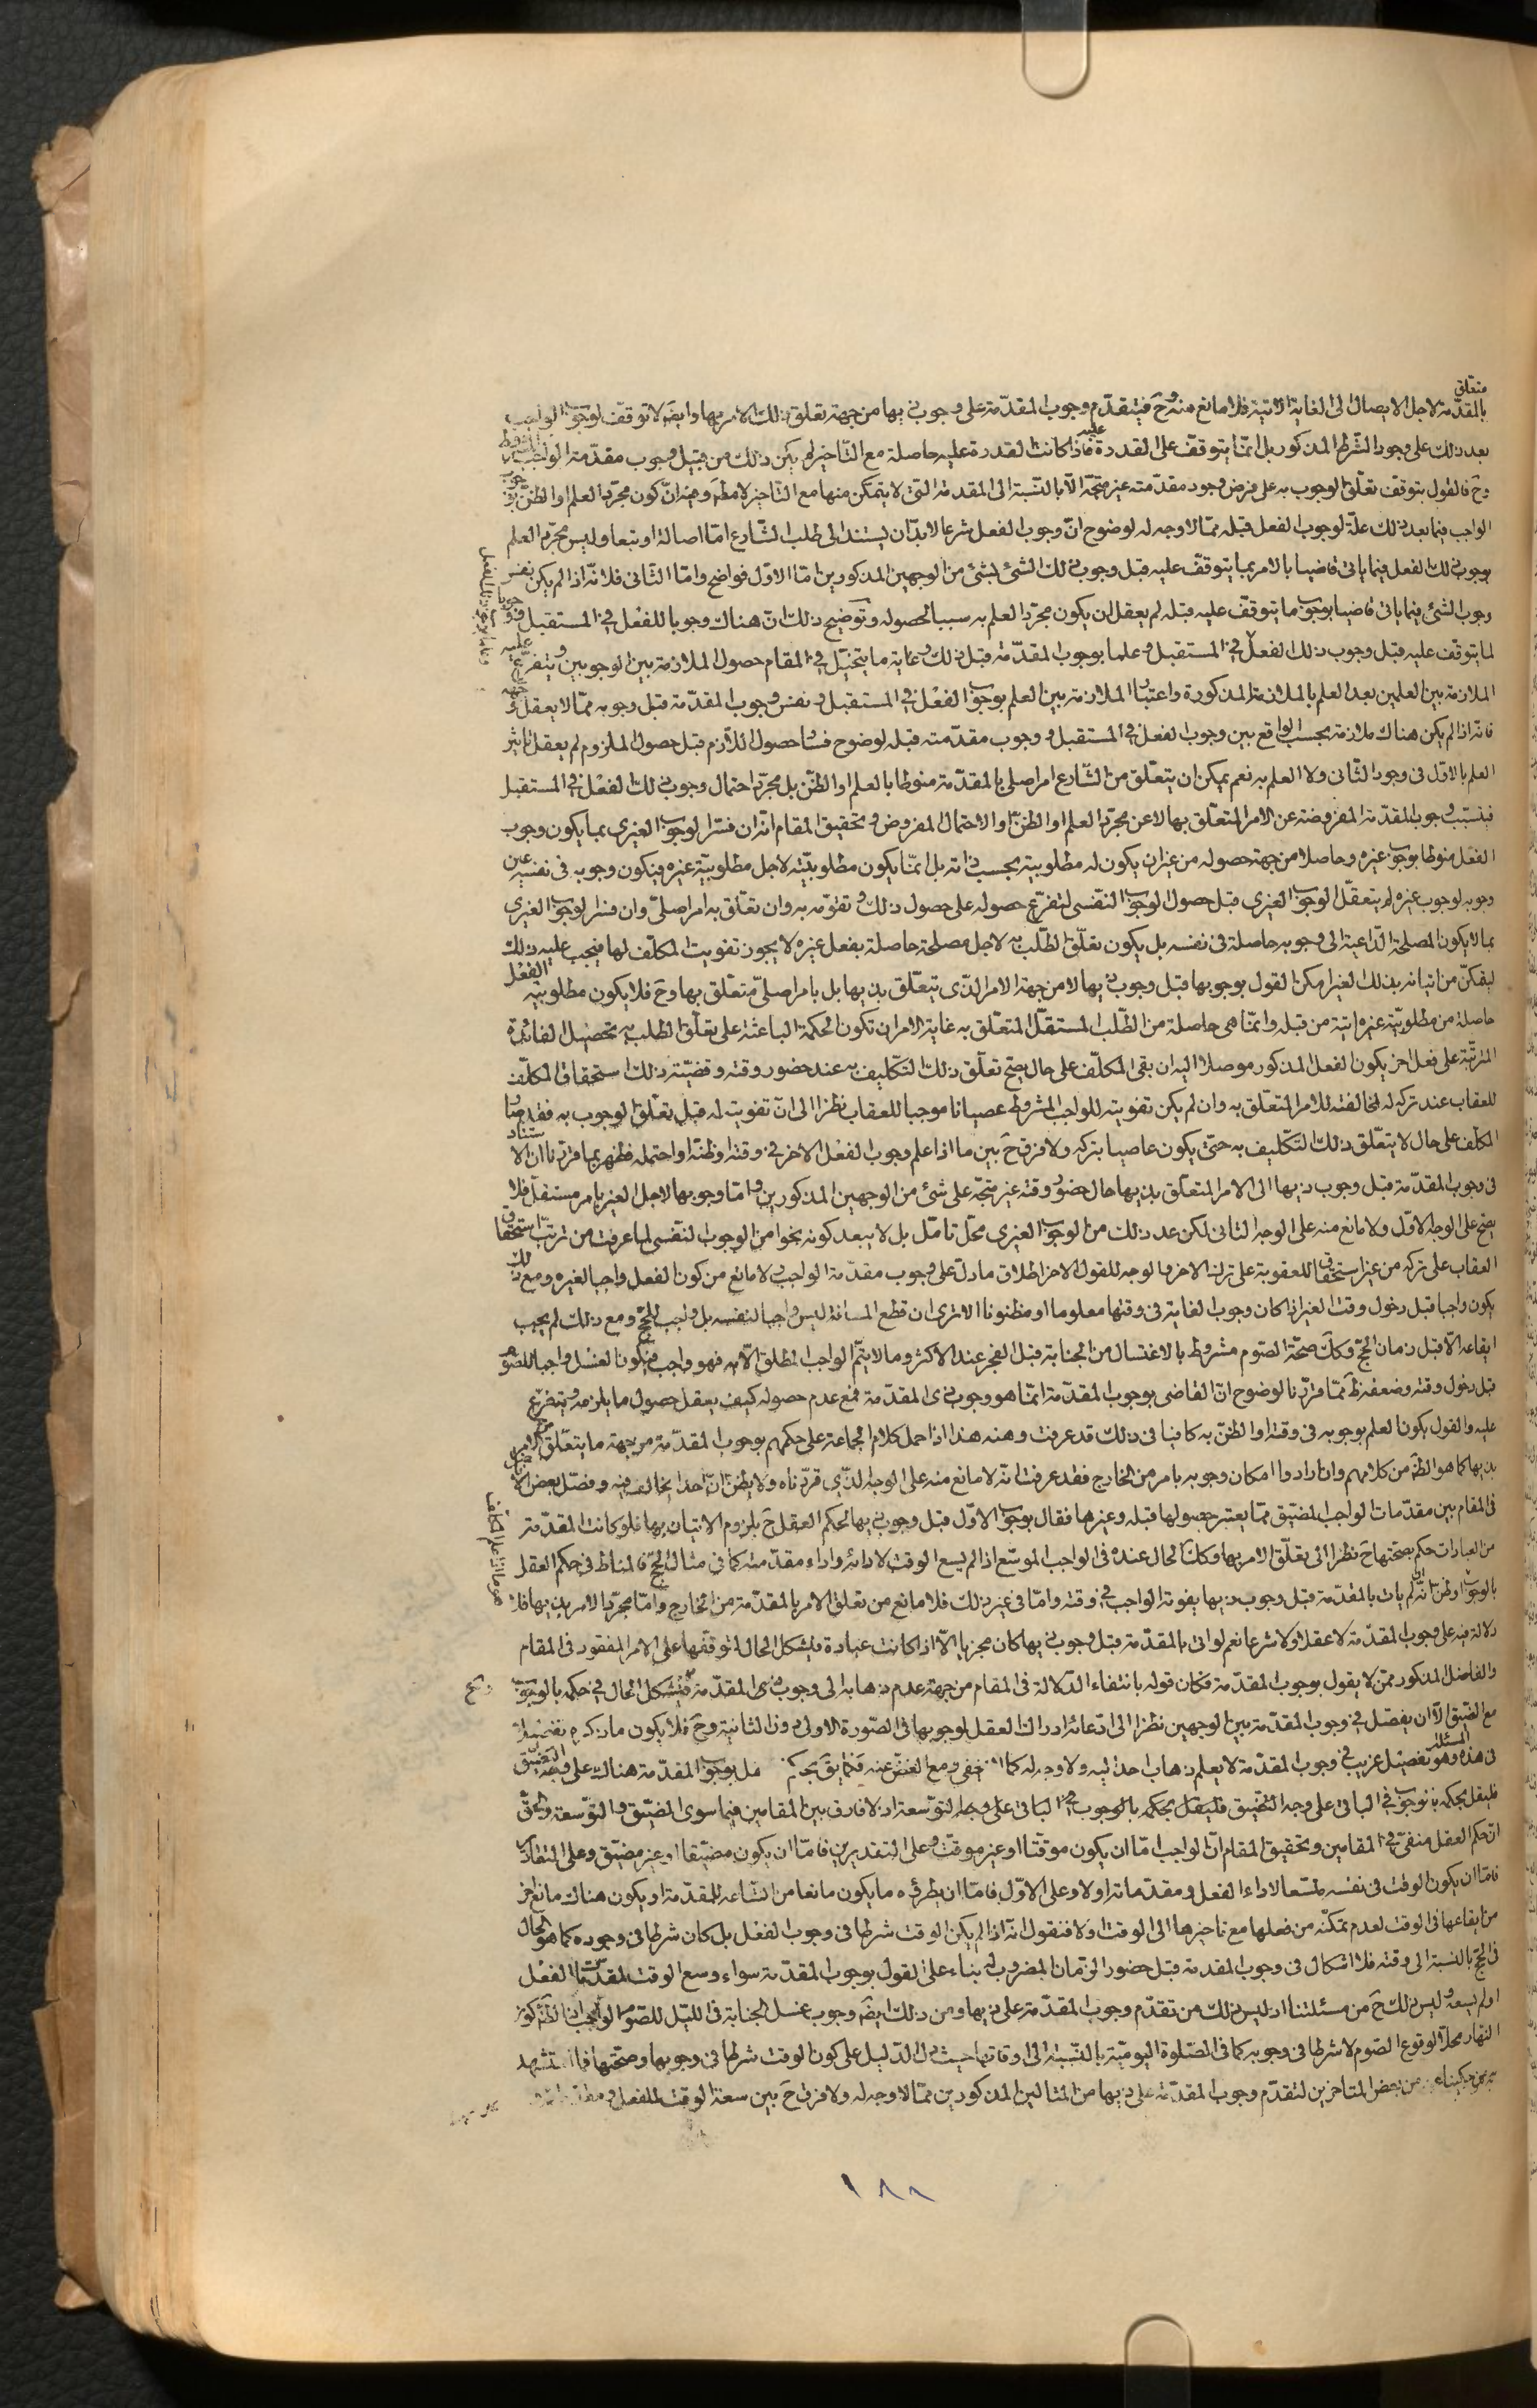 متعلق
بالمقدّمة لاجل الايصال الى الغاية الاتية فلا مانع منه وح فيتقدّم وجوب المقدّمة على وجوب ذيها من جهة تعلق ذلك الامر بها وايضَ لا توقف لوجوب الواجب
بعد ذلك على وجود الشرط المذكور بل انما يتوقف على القدرة عليه فاذا كانت القدرة عليه حاصلة مع التاخير لم يكن ذلك من قبيل وجوب مقدّمة الواجب
وح فالقول بتوقف تعلق الوجوب به على فرض وجود مقدّمته غير متجه الا بالنسبة الى المقدمة التى لا يتمكن منها مع التاخير لا مطلقا وفيه ان كون مجرّد العلم او الظن
الواجب فيما بعد ذلك علة لوجوب الفعل قبله ممّا لا وجه له لوضوح انّ وجوب الفعل شرعا لا بدّ ان يستند الى طلب الشارع امّا اصالة او تبعا وليس مجرّد العلم
بوجوب ذلك الفعل فيما ياتى قاضيا بالامر بما يتوقف عليه قبل وجوب ذلك الشئ لشئ من الوجهين المذكورين امّا الاوّل فواضح وامّا الثّانى فلانّه اذا لم يكن نفس
وجوب الشئ فيما ياتى قاضيا بوجوب ما يتوقف عليه قبله لم يعقل ان يكون مجرّد العلم به سببا لحصوله وتوضيح ذلك انّ هناك وجوبا للفعل في المستقبل ووجوبا
لما يتوقف عليه قبل وجوب ذلك الفعل في المستقبل وعلما بوجوب المقدّمة قبل ذلك وغاية ما يتخيّل في المقام حصول الملازمة بين الوجوبين ويتفرّع عليه
الملازمة بين العلمين بعد العلم بالملازمة المذكورة واعتبار الملازمة بين العلم بوجوب الفعل في المستقبل ونفس وجوب المقدّمة قبل وجوبه ممّا لا يعقل وجهه
فانه اذا لم يكن هناك ملازمة بحسب الواقع بين وجوب الفعل في المستقبل ووجوب مقدّمته قبله لوضوح فساد حصول اللازم قبل حصول الملزوم لم يعقل تاثير
العلم بالاوّل فى وجود الثّانى ولا العلم به نعم يمكن ان يتعلق من الشّارع امر اصلى بالمقدّمة منوطا بالعلم او الظنّ بل مجرّد احتمال وجوب ذلك الفعل في المستقبل
فيتسبّب وجوب المقدّمة المفروضة عن الامر المتعلّق بها لا عن مجرّد العلم او الظنّ او الاحتمال المفروض وتحقيق المقام انه ان فسّر الوجوب الغيرى بما يكون وجوب
الفعل منوطا بوجوب غيره وحاصلا من جهة حصوله من غير ان يكون له مطلوبية بحسب ذاته بل انمّا يكون مطلوبيّته لاجل مطلوبيّة غيره فيكون وجوبه فى نفسه عين
وجوبه لوجوب غيره لم يتعقل الوجوب الغيرى قبل حصول الوجوب النفسى لتفرّع حصوله على حصول ذلك وتقوّمه به وان تعلق به امر اصلىّ وان فسّر الوجوب الغيرى
بما لا يكون المصلحة الدّاعية الى وجوبه حاصلة فى نفسه بل يكون تعلق الطلب به لاجل مصلحة حاصلة بفعل غيره لا يجوز تفويت المكلف لها فيجب عليه ذلك الفعل
ليتمكن من اتيانه بذلك الغير امكن القول بوجوبها قبل وجوب ذيها لا من جهة الامر الذى يتعلق بذيها بل بامر اصلىّ متعلق بها وح فلا يكون مطلوبيّته
حاصلة من مطلوبيّة غيره اتية من قبله وانمّا هى حاصلة من الطلب المستقل المتعلق به غاية الامر ان تكون الحكمة الباعثة على تعلق الطلب به تحصيل الفائدة
المترتبة على فعل اخر يكون الفعل المذكور موصلا اليه ان بقى المكلف على حال يصح تعلق ذلك التكليف به عند حضور وقته وقضيّته ذلك استحقاق المكلف
للعقاب عند تركه له لمخالفته للامر المتعلق به وان لم يكن تفويته للواجب المشروط عصيانا موجبا للعقاب نظرا الى انّ تفويته له قبل تعلق الوجوب به فقد صار
المكلف على حال لا يتعلق ذلك التكليف به حتى يكون عاصيا بتركه ولا فرق ح بين ما اذا علم وجوب الفعل الاخر في وقته او ظنه او احتمله فظهر بما قرّرنا ان الاستناد
فى وجوب المقدّمة قبل وجوب ذيها الى الامر المتعلق بذيها حال حضور وقته غير متجه على شئ من الوجهين المذكورين وامّا وجوبها لاجل الغير بامر مستقل فلا
يصح على الوجه الاوّل ولا مانع منه على الوجه الثانى لكن عد ذلك من الوجوب الغيرى محل تامّل بل لا يبعد كونه نحوا من الوجوب النفسى لما عرفت من ترتب استحقاق
العقاب على تركه من غير استحقاق للعقوبة على ترك الاخر والوجه للقول الاخر اطلاق ما دلّ على وجوب مقدّمة الواجب ولا مانع من كون الفعل واجبا لغيره ومع ذلك
يكون واجبا قبل دخول وقت الغير اذا كان وجوب الغاية فى وقتها معلوما او مظنونا الا ترى ان قطع المسافة ليس واجبا لنفسه بل واجب للحجّ ومع ذلك لم يجب
ايقاعه الّا قبل زمان الحجّ وكك صحّة الصّوم مشروط بالاغتسال من الجنابة قبل الفجر عند الاكثر وما لا يتمّ الواجب المطلق الّا به فهو واجب فيكون الغسل واجبا للصّوم
قبل دخول وقته وضعفه ظَ ممّا قرّرنا لوضوح انّ القاضى بوجوب المقدّمة انمّا هو وجوب ذى المقدّمة فمع عدم حصوله كيف يعقل حصول ما يلزمه ويتفرّع
عليه والقول بكون العلم بوجوبه فى وقته او الظنّ به كافيا فى ذلك قد عرفت وهنه هذا اذا حمل كلام الجماعة على حكمهم بوجوب المقدّمة من جهة ما يتعلق من الامر
بذيها كما هو الظَ من كلامهم وان ارادوا امكان وجوبه بامر من الخارج فقد عرفت انه لا مانع منه على الوجه الذى قرّرناه ولا يظن انّ احدا يخالف فيه وفصّل بعض الافاضل
فى المقام بين مقدّمات الواجب المضيّق ممّا يعتبر حصولها قبله وغيرها فقال بوجوب الاوّل قبل وجوب ذيها لحكم العقل ح بلزوم الاتيان بها فلو كانت المقدّمة
من العبادات حكم بصحّتها ح نظرا الى تعلق الامر بها وكك الحال عنده فى الواجب الموسّع اذا لم يسع الوقت لادائه واداء مقدّمته كما فى مثال الحجّ فالمناط فى حكم العقل
بالوجوب انّه لم يات بالمقدّمة قبل وجوب ذيها يفوته الواجب في وقته وامّا فى غير ذلك فلا مانع من تعلق الامر بالمقدّمة من الخارج وامّا مجرّد الامر بذيها فلا
دلالة فيه على وجوب المقدّمة لا عقلا ولا شرعا نعم لو اتى بالمقدّمة قبل وجوب ذيها كان مجزيا الّا اذا كانت عبادة فيشكل الحال لتوقفها على الامر المفقود فى المقام
والفاضل المذكور ممّن لا يقول بوجوب المقدّمة فكان قوله بانتفاء الدّلالة فى المقام من جهة عدم ذهابه الى وجوب ذى المقدّمة فيشكل الحال في حكمه بالوجوب
مع الضيق الّا ان يفصّل في وجوب المقدّمة بين الوجهين نظرا الى ادّعائه ادراك العقل لوجوبها فى الصّورة الاولى دون الثانية وح فلا يكون ما ذكره تفصيلا
فى هذه المسئلة وهو تفصيل غريب في وجوب المقدّمة لا يعلم ذهاب احد اليه ولا وجه له كما لا يخفى ومع الغضّ عنه فكما يقَ بحكم العقل بوجوب المقدّمة هناك على وجه التضيّق
فليقل بحكمه بالوجوب في الباقى على وجه التوسعة اذ لا فارق بين المقامين فيما سوى الضيق والتوسعة والحق
انّ حكم العقل منفىّ في المقامين وتحقيق المقام انّ الواجب امّا ان يكون موقتا او غير موقت وعلى التقديرين فامّا ان يكون مضيّقا او غير مضيّق وعلى التقادير
فامّا ان يكون الوقت فى نفسه متّسعا لاداء الفعل ومقدّماته اولا وعلى الاوّل فامّا ان يطرئه ما يكون مانعا من اتساعه للمقدّمة او يكون هناك مانع اخر
من ايقاعها فى الوقت لعدم تمكنه من فعلها مع تاخيرها الى الوقت اولا فنقول انه اذا لم يكن الوقت شرطا فى وجوب الفعل بل كان شرطا فى وجوده كما هو الحال
فى الحجّ بالنسبة الى وقته فلا اشكال فى وجوب المقدمة قبل حضور الزمان المضروب له بناء على القول بوجوب المقدّمة سواء وسع الوقت لمقدّمات الفعل
او لم يسعه وليس ذلك ح من مسئلتنا اذ ليس ذلك من تقدّم وجوب المقدّمة على ذيها ومن ذلك ايضَ وجوب غسل الجنابة فى الليل للصّوم الواجب اذا الظَ كون
النهار محلا لوقوع الصّوم لا شرطا فى وجوبه كما فى الصّلوة اليوميّة بالنسبة الى اوقاتها حيث دل الدّليل على كون الوقت شرطا فى وجوبها وصحّتها فما استشهد
من بعض المتاخرين لتقدّم وجوب المقدّمة على ذيها من المثالين المذكورين ممّا لا وجه له ولا فرق ح بين سعة الوقت للفعل
١٨٨